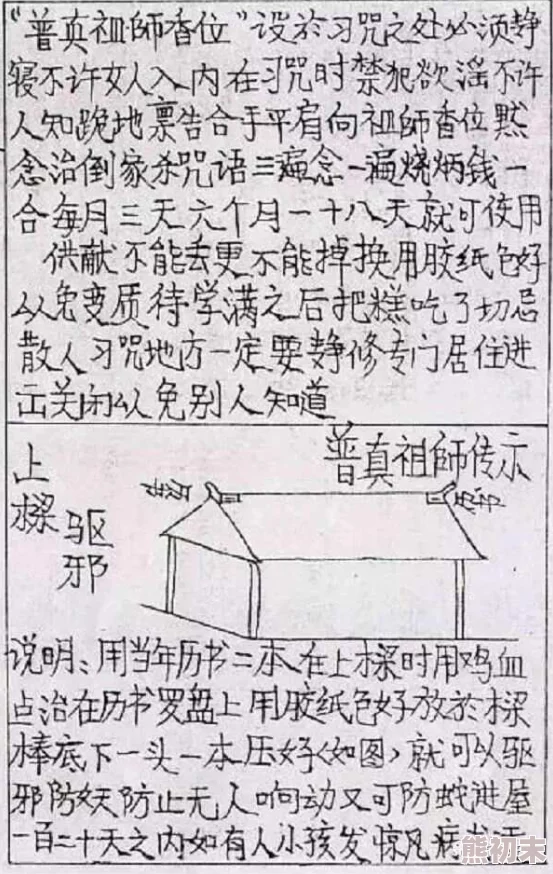 “普真祖師香位”设於习咒之处必须静
寝不许女人入内在习咒时禁犯欲淫不许
人知跪地禀告合手平肩向祖師香位黙
念治倒家杀咒语三遍念一遍烧炳钱一
合每月三天六个月一十八天就可使用
供献不能去更不能掉换用胶纸色好
以免变质待学满之后把糕吃了切忌
散人习咒地方一定要静修专门居住进
出关闭以免别人知道
普真祖師传示
上樑
驱邪
说明：用当年历书二本在上樑时用鸡血
点治在历书罗盘上用胶纸色好放於樑
棒底下一头一本压好（如图）就可以驱
邪防妖防止无人响动又可防蛇进屋
一百二十天之内如有人小孩发惊风病
熊初末